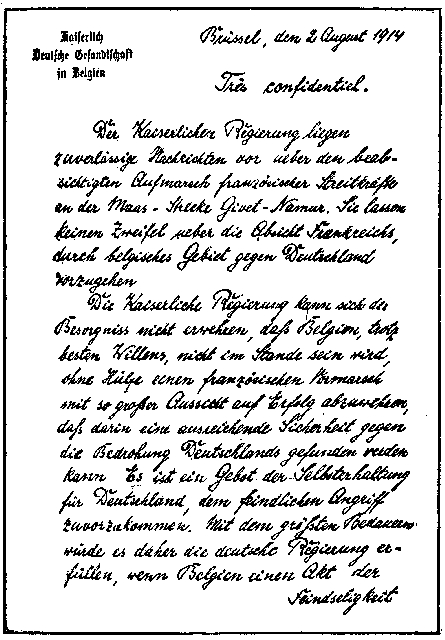 Kaiserlich
Deutsche Gesandtschaft
in Belgien
Brüssel, den 2 August 1914
Très confidentiel.
Der Kaiserlichen Regierung liegen
zuverlässige Nachrichten vor ueber den beab-
sichtigten Aufmarsch französischer Streitkräfte
an der Maas-Strecke Givet-Namur. Sie lassen
keinen Zweifel ueber die Absicht Frankreichs,
durch belgisches Gebiet gegen Deutschland
vorzugehen
Die Kaiserliche Regierung kann sich der
Besorgniss nicht erwehren, daß Belgien, trotz
besten Willens, nicht im Stande sein wird,
ohne Hülfe einen französischen Vormarsch
mit so großer Aussicht auf Erfolg abzuwehren,
daß darin eine ausreichende Sicherheit gegen
die Bedrohung Deutschlands gefunden werden
kann Es ist ein Gebot der Selbsterhaltung
für Deutschland, dem feindlichen Angriff
zuvorzukommen. Mit dem größten Bedauern
würde es daher die deutsche Regierung er-
füllen, wenn Belgien einen Akt der
Feindseligkeit